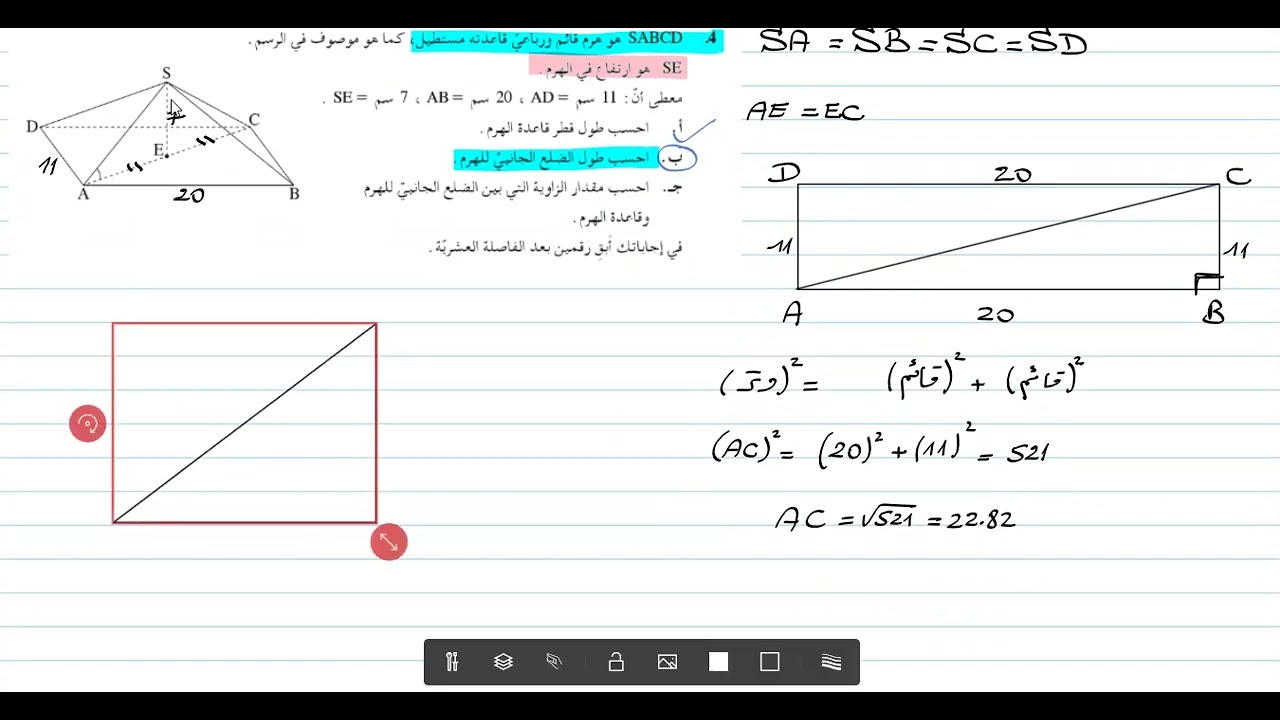 4. SABCD هو هرم قائم ورباعيّ قاعدته مستطيل، كما هو موصوف في الرسم.
SE هو ارتفاع في الهرم.
معطى أنّ: 11 سم = AD ، 20 سم = AB ، 7 سم = SE .
أ. احسب طول قطر قاعدة الهرم.
ب. احسب طول الضلع الجانبيّ للهرم.
جـ. احسب مقدار الزاوية التي بين الضلع الجانبيّ للهرم
وقاعدة الهرم.
في إجاباتك أَبقِ رقمين بعد الفاصلة العشريّة.
S
D
C
E
7
11
A
20
B
SA = SB = SC = SD
AE = EC
D 20 C
11 11
A 20 B
(وتر)² = (قائم)² + (قائم)²
(AC)² = (20)² + (11)² = 521
AC = √521 = 22.82